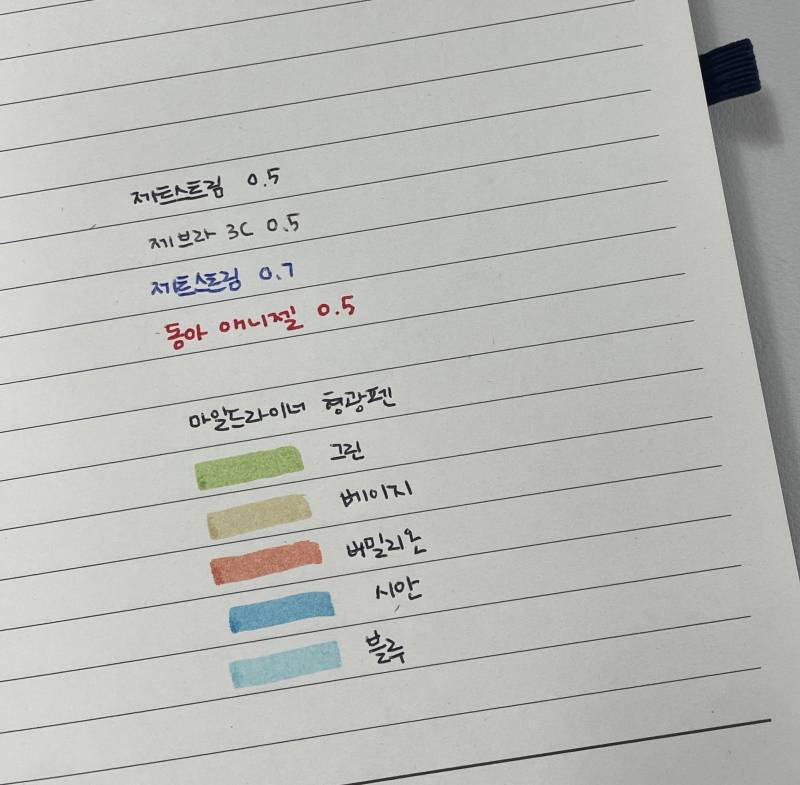 제트스트림 0.5
제브라 3C 0.5
제트스트림 0.7
동아 애니젤 0.5
마일드라이너 형광펜
그린
베이지
버밀리온
시안
블루